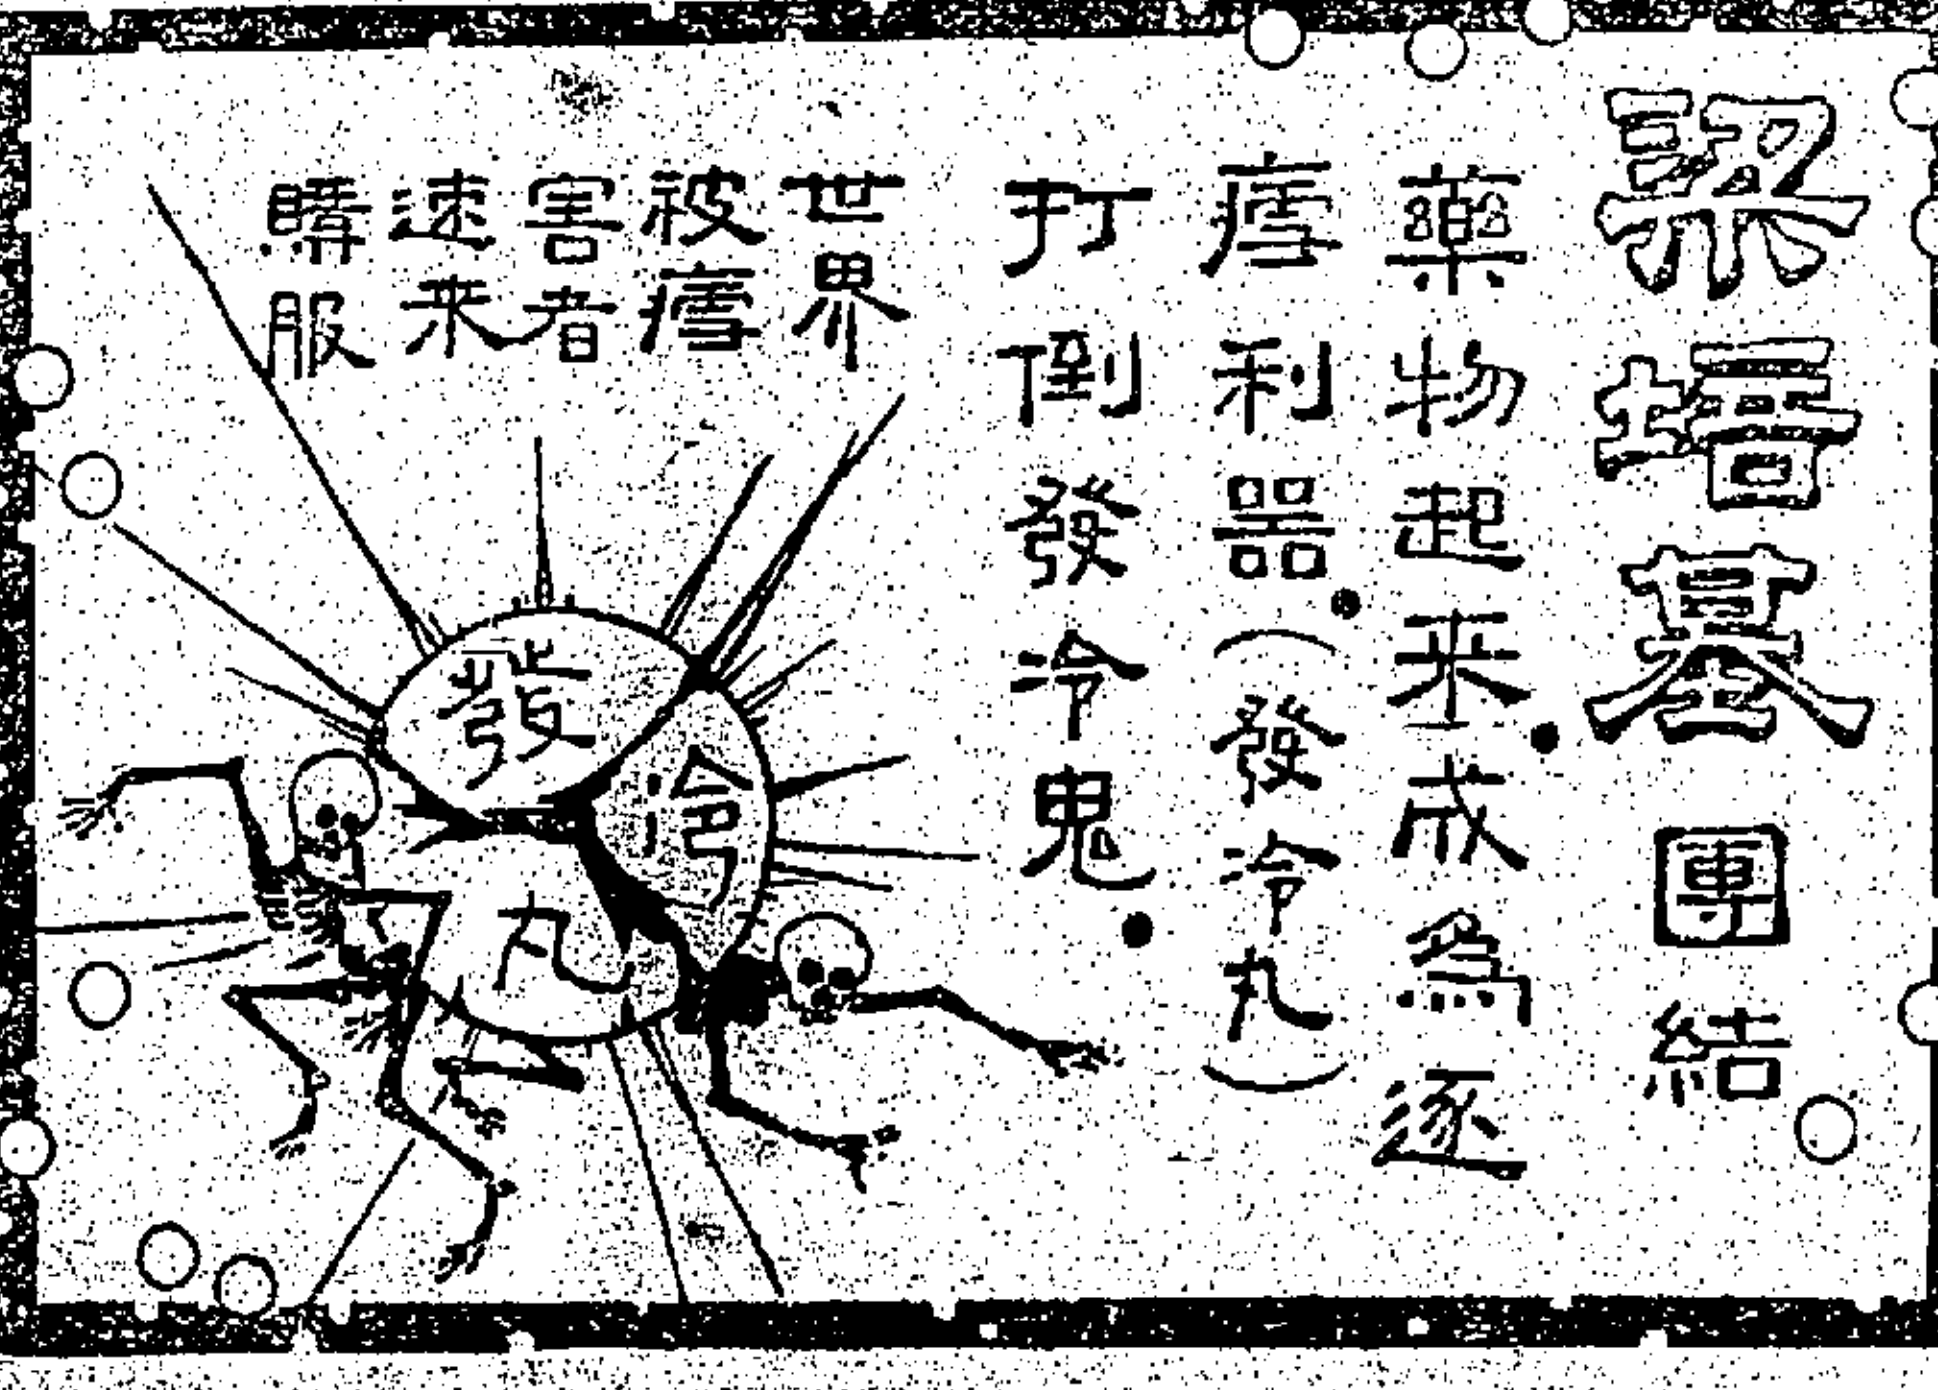 梁培基團結
藥物起来成為逐
瘧利器（發冷丸）
打倒發冷鬼
世界
被瘧
害者
速来
購服
發冷丸